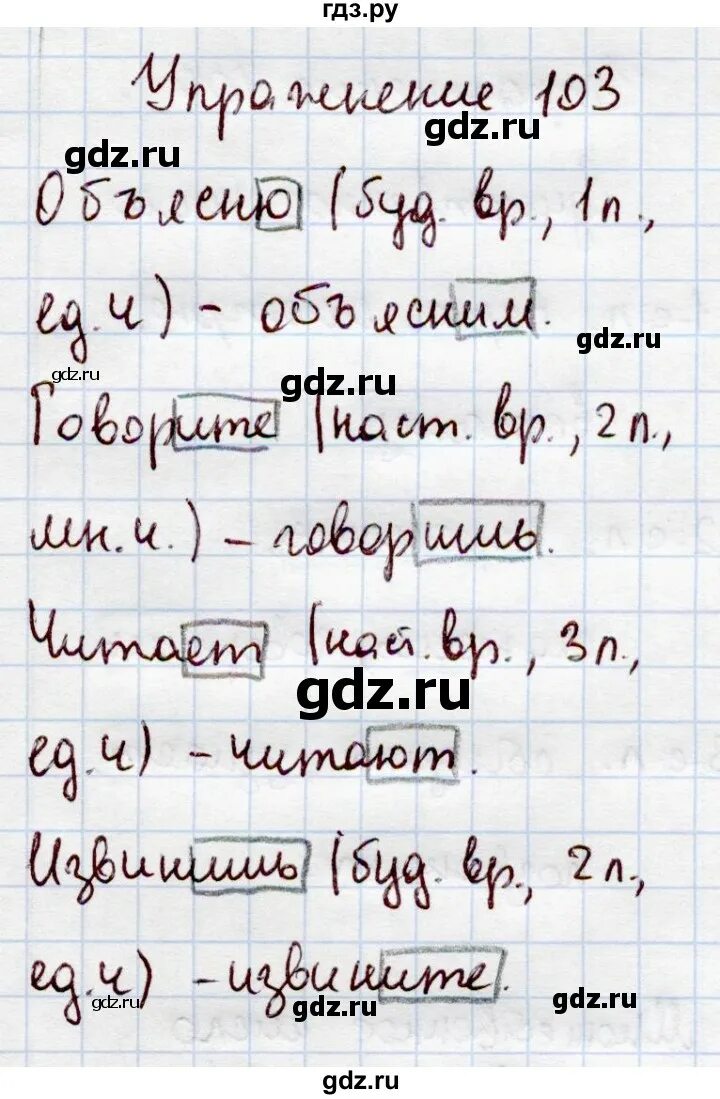 гдз.ру
Упражнение 103
gdz.ru
gdz.ru
Объясню (буд. вр., 1 п.,
ед.ч) - объясним.
gdz.ru
gdz.ru
gdz.ru
Говорите (наст. вр., 2 п.,
мн.ч.) - говоришь.
Читает (наст. вр., 3 п.,
gdz.ru
ед.ч) - читают.
Извинишь (буд. вр., 2 п.,
ед.ч) - извините.
gdz.ru
gdz.ru
gdz.ru
gdz.ru